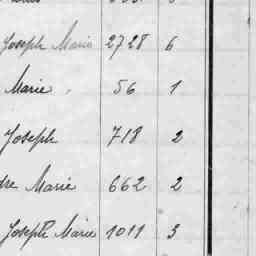 Joseph Marie 2728 6
Marie 56 1
Joseph 718 2
dre Marie 662 2
Joseph Marie 1011 3